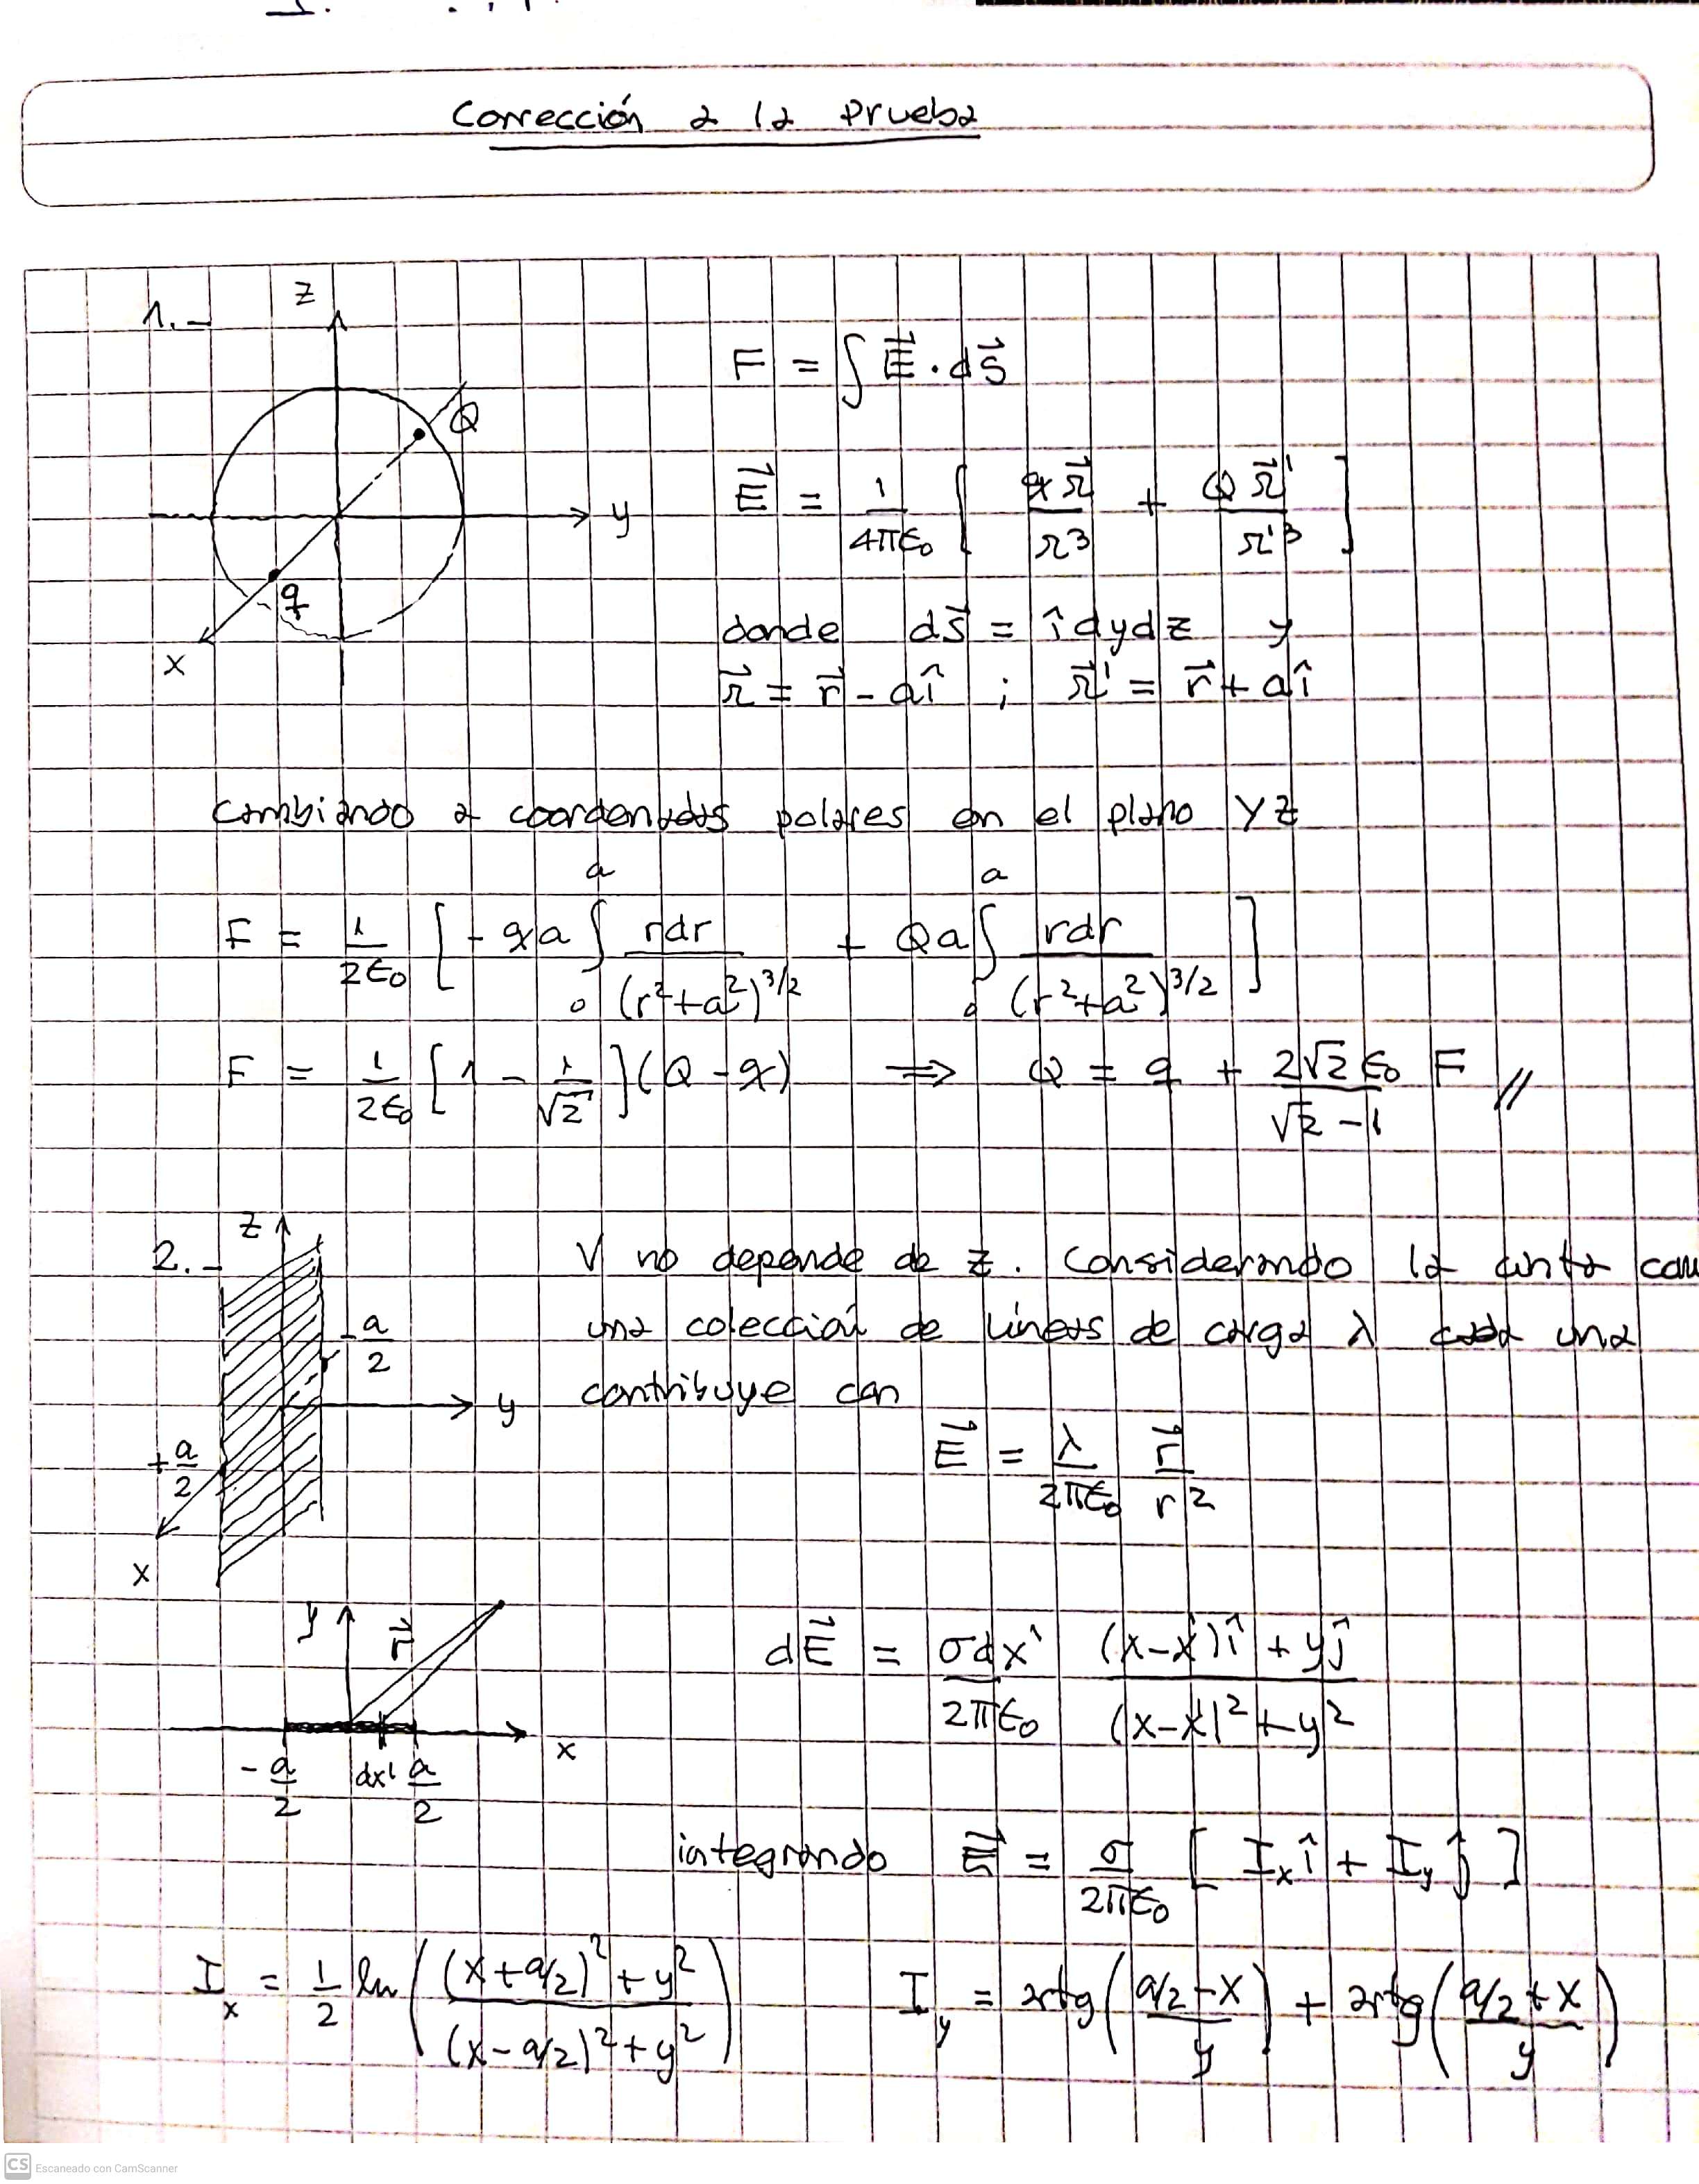 Corrección a la Prueba
1.-
z
Q
y
q
x
F = ∫ E⃗ · dS⃗
E⃗ = 1/(4πε₀) [ q r⃗/r³ + Q r⃗'/r'³ ]
donde dS⃗ = î dydz y
r⃗ = r⃗ - aî ; r⃗' = r⃗ + aî
Cambiando a coordenadas polares en el plano YZ
F = 1/(2ε₀) [ - qa ∫₀ᵃ rdr/(r²+a²)^(3/2) + Qa ∫₀ᵃ rdr/(r²+a²)^(3/2) ]
F = 1/(2ε₀) [ 1 - 1/√2 ] (Q - q) ⟹ Q = q + (2√2 ε₀)/(√2 - 1) F //
2.-
z
-a/2
y
+a/2
x
V no depende de z. Considerando la cinta com
una colección de líneas de carga λ cada una
contribuye con
E⃗ = λ/(2πε₀) r⃗/r²
y
r⃗
x
-a/2 dx' a/2
dE⃗ = σdx'/(2πε₀) ((x-x')î + yĵ)/((x-x')² + y²)
integrando E⃗ = σ/(2πε₀) [ Iₓ î + I_y ĵ ]
Iₓ = 1/2 ln( ((x+a/2)² + y²)/((x-a/2)² + y²) ) I_y = artg( (a/2 - x)/y ) + artg( (a/2 + x)/y )
CS Escaneado con CamScanner